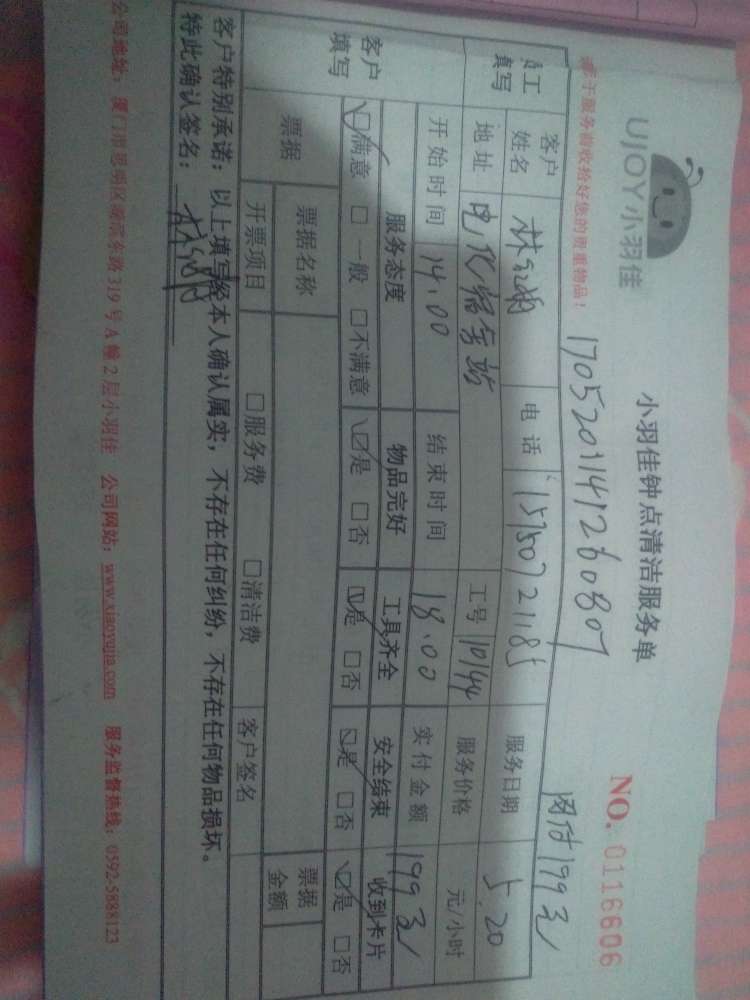 UJOY小羽佳
小羽佳钟点清洁服务单
NO. 0116606
于服务前收拾好您的贵重物品！
网付199元
客户姓名 电话 15750721185 服务日期 5.20
员工填写
地址 工号 10144 服务价格 元/小时
开始时间 14.00 结束时间 18.00 实付金额 199元
客户填写
服务态度 物品完好 工具齐全 安全结束 收到卡片
☑满意 □一般 □不满意 ☑是 □否 ☑是 □否 ☑是 □否 ☑是 □否
票据 票据名称 票据金额
开票项目 □服务费 □清洁费 客户签名
客户特别承诺：以上填写经本人确认属实，不存在任何纠纷，不存在任何物品损坏。
特此确认签名：
公司地址：厦门市思明区 319号A幢2层小羽佳 公司网站：www.xiaoyujia.com 服务监督热线：0592-5888123